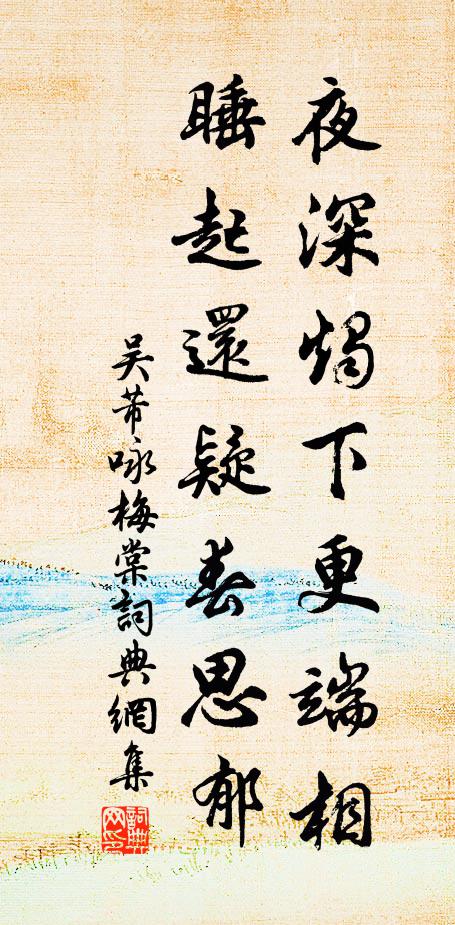 夜深燭下更端相
睡起還疑春思郁
吴芾咏梅棠詞典網集
詞典網印